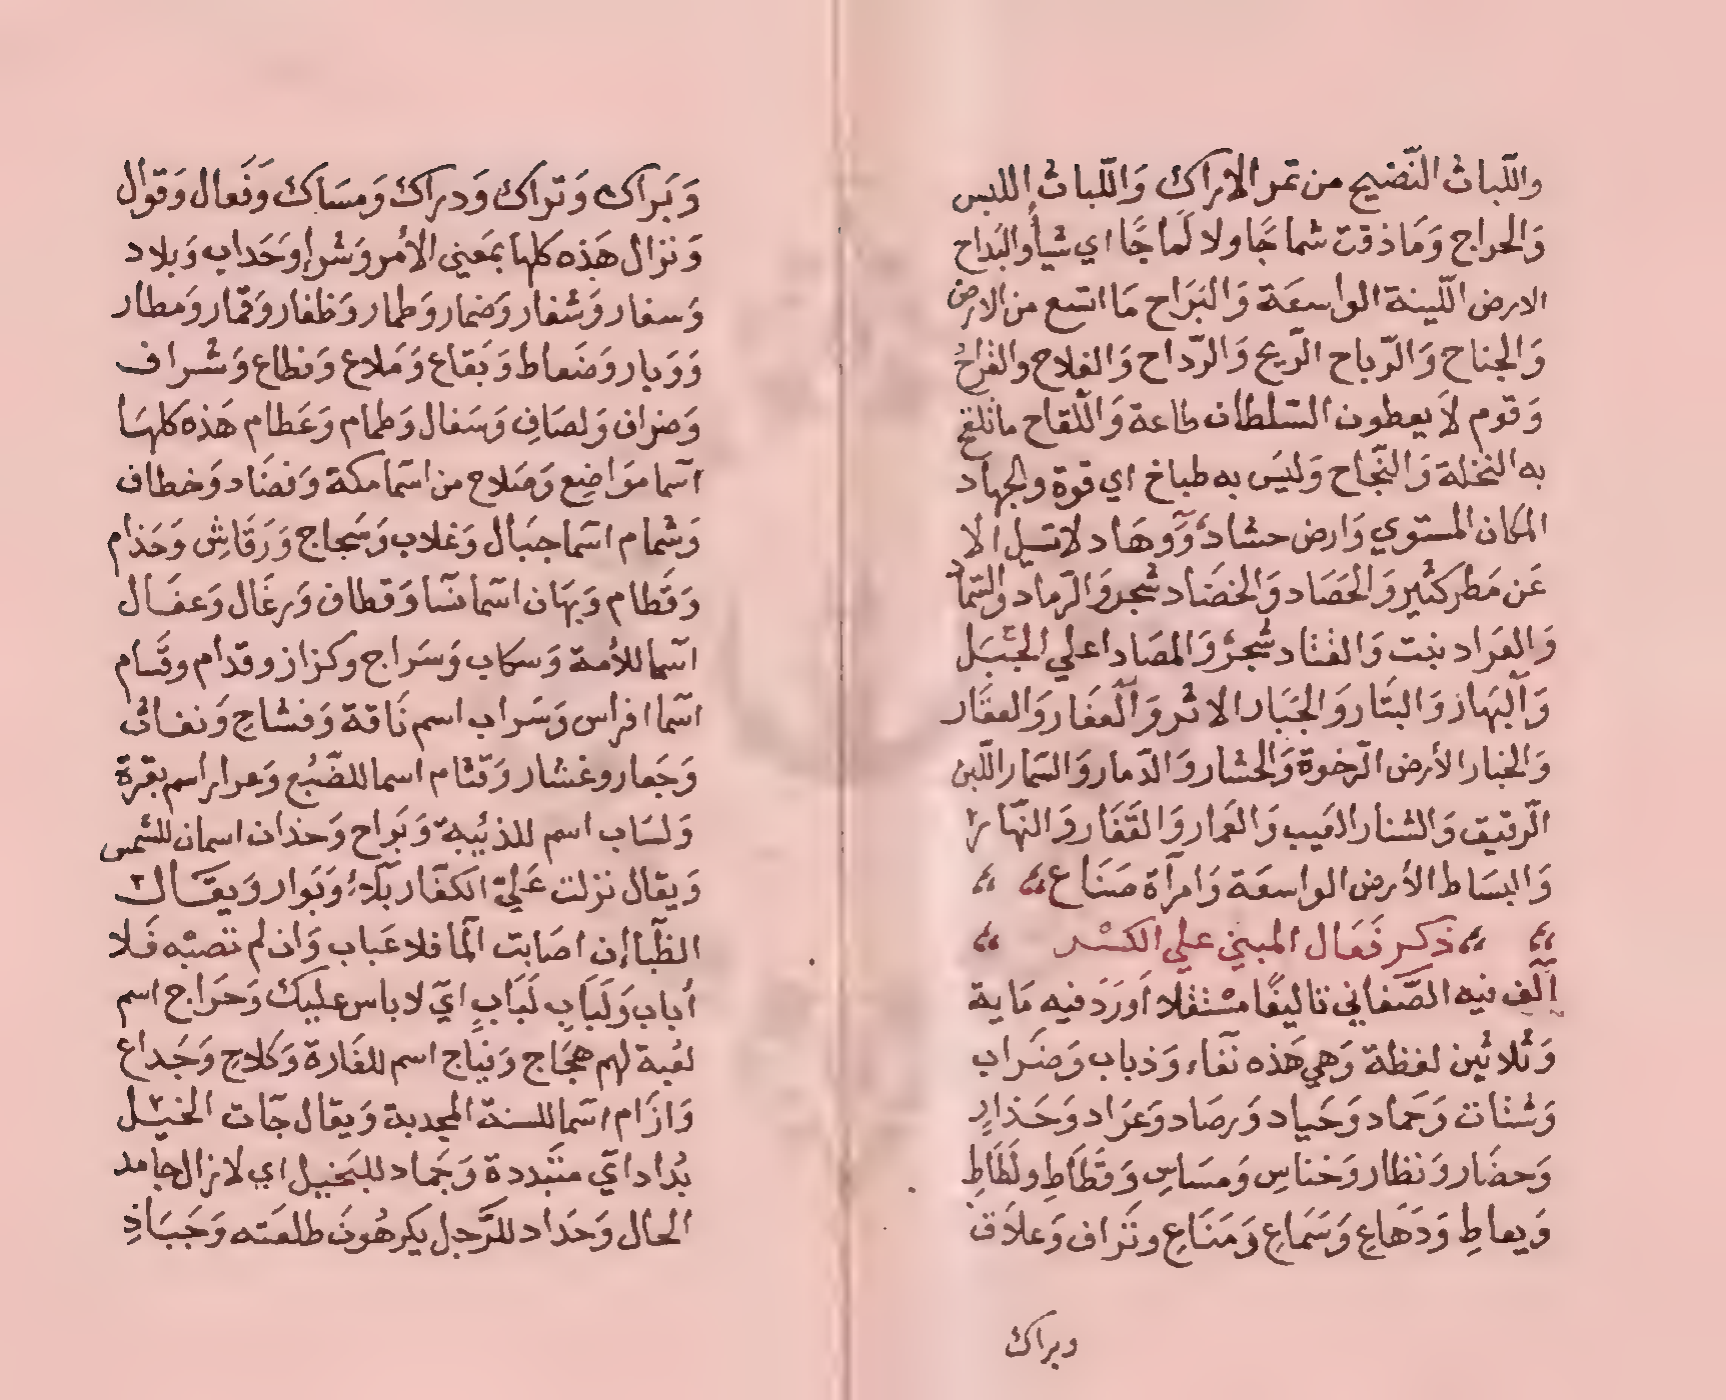 واللّباث النّضيج من ثمر الاراك وَاللّباث اللبس
وَالحراج وَمَا ذقت شماجًا ولا لَماجًا اي شيأ والبَداح
الارض اللّينة الواسعَة وَالبَرَاح مَا اتسع من الارض
وَالجناح وَالرّباح الرّيح وَالرّداح وَالفلاح والقراحُ
وَقوم لاَ يعطون السّلطان طاعة وَاللّقاح ما تلقح
به النخلة وَالنّجاح وَليَس به طباخ اي قوة والجهاد
المكان المستوي وَارض حشاد وَوهَاد لا تسيل الا
عَن مَطر كثير وَالحَصَاد وَالخضَاد شجر وَالرّماد والسّما
وَالعَرَاد نبت وَالقتاد شجر وَالمصَاد اعلي الجَبَل
وَالبَهار وَالبتَار وَالجَبَار الاثر وَالعفَار وَالعقَار
وَالخبار الأرض الرّخوة وَالحشار وَالدّمار وَالسّمار اللّبن
الرّقيق وَالشنار العَيب وَالغمار وَالقَفَار وَالنّهار
وَالبسَاط الأرض الواسعَة وَامرأة صَنَاع
ذكر فَعَال المبني علي الكسْر
الّف فيه الصّغاني تاليفًا مسْتقلا اَورَدَ فيه مَاية
وَثلاثين لفظة وَهي هَذه نَعَاء وَذباب وَضَراب
وَشتات وَحَماد وَحَياد وَرصَاد وَعَرَاد وَحَذارِ
وَحضَار وَنظار وَخناسِ وَمسَاسِ وَقطَاطِ ولَطَاطِ
وَيعاطِ وَدَهَاعِ وَسَمَاعِ وَمَنَاعِ ونَزاف وَعلاَق
وبراك
وَبَراك وَتَراك وَدراك وَمسَاك وَفَعال وَقوال
وَنزال هَذه كلها بمَعني الاُمر وَشراءِ وَحَداب وَبلاد
وَسفار وَشفار وَضمار وَطمار وَظفار وَقمار وَمطار
وَوَبار وَضَعاط وَبَقاع وَمَلاع وَنطاع وَشراف
وَضراف وَلصَافِ وَسَفال وَطمام وَعَظام هَذه كلهَا
اسَما مَواضِع وَصَلاح من اسَما مكة وَفضَاد وَخطاف
وَشمام اسَما جبَال وَغلاب وَسَجاج وَرَقَاشِ وَحَذام
وَقَطام وَبهَان اسَما نسَا وَقطاف وَرغَال وَعفَال
اسَما للأمة وَسكاب وَسَراج وكزاز وقدام وقسَام
اسَما افراس وَسَراب اسم نَاقة وَفشاح وَنفاث
وَجَعار وغثار وَقثام اسما للضّبُع وَعرار اسم بقرة
وَلسَاب اسم للذئبة وَبَراح وَحذاف اسمان للشمس
وَيقال نزلت عَليَ الكفّار بَلاءِ وَبَوار وَيقَال
الظّباء إن اصَابت الما فلا عَباب وَان لم تصبْه فَلا
اُباب وَلَبَابِ لَبَابِ ايَ لا باس عليك وَخَراج اسم
لعبة لهم هجَاج وَنبَاج اسم للغَارة وَكلاح وَجَداع
وَازَام اسَما للسنة المجدبة وَيقال جآت الخيل
بَداد ايَ متبَددة وَجَماد للبَخيل اي لا زال جامد
الحال وَحَداد للرَّجل يَكرهُونَ طلعَته وَجَبَاذِ